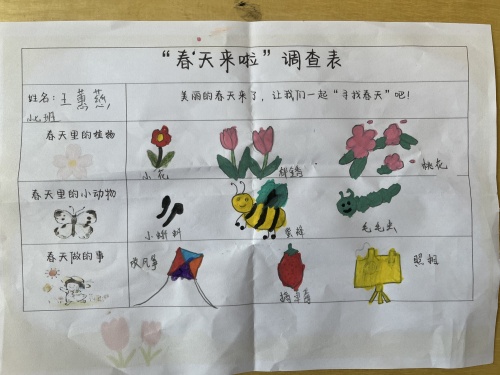 “春天来啦”调查表
姓名：王蕙
美丽的春天来了，让我们一起“寻找春天”吧！
春天里的植物
小花
桃花
春天里的小动物
小蝌蚪
蜜蜂
毛毛虫
春天做的事
照相